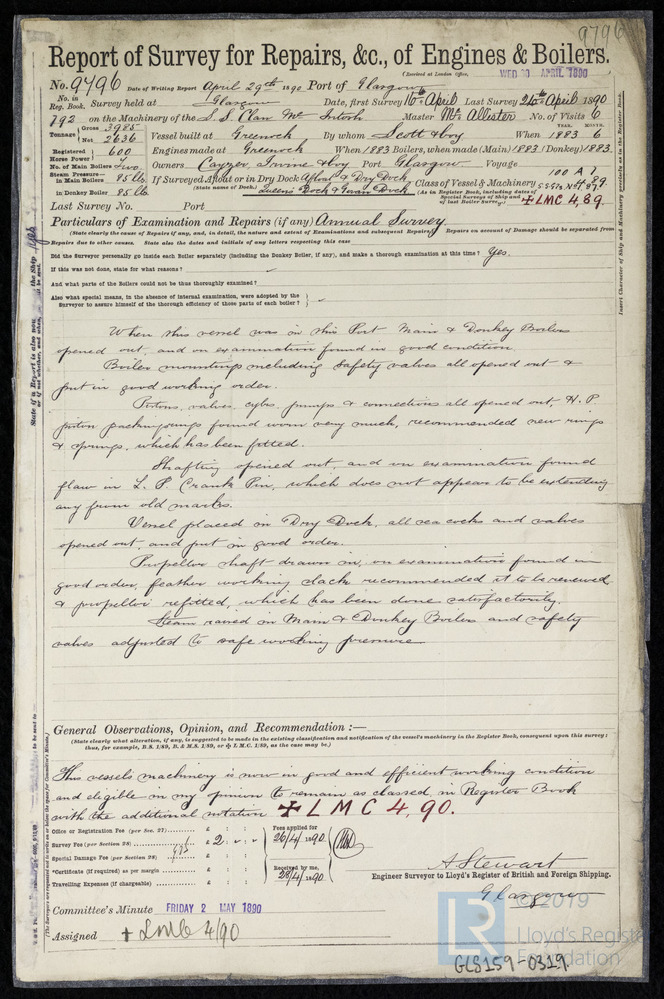 9796
Report of Survey for Repairs, &c., of Engines & Boilers.
(Received at London Office, WED 30 APRIL 1890
No. 9796 Date of Writing Report April 29th 1890 Port of Glasgow
No. in Reg. Book. Survey held at Glasgow Date, first Survey 16th April Last Survey 26th April 1890
792 on the Machinery of the S.S. Clan McIntosh Master McAllister No. of Visits 6
Tonnage Gross 3985 Net 2636 Vessel built at Greenock By whom Scott & Coy When YEAR. 1883 MONTH. 6
Registered Horse Power 600 Engines made at Greenock When 1883 Boilers, when made (Main) 1883 (Donkey) 1883
No. of Main Boilers Two Owners Cayzer Irvine & Coy Port Glasgow Voyage
Steam Pressure in Main Boilers 85 lbs If Surveyed Afloat or in Dry Dock Afloat & Dry Dock Class of Vessel & Machinery 100 A 1
in Donkey Boiler 85 lbs (State name of Dock.) Queens Dock & Govan Dock (As in Register Book, including dates of Special Surveys of ship and of last Boiler Survey.)
Last Survey No. Port ✠ LMC 4,89.
Particulars of Examination and Repairs (if any) Annual Survey
(State clearly the cause of Repairs if any, and, in detail, the nature and extent of Examinations and subsequent Repairs. Repairs on account of Damage should be separated from
Repairs due to other causes. State also the dates and initials of any letters respecting this case
Did the Surveyor personally go inside each Boiler separately (including the Donkey Boiler, if any), and make a thorough examination at this time? Yes.
If this was not done, state for what reasons?
And what parts of the Boilers could not be thus thoroughly examined?
Also what special means, in the absence of internal examination, were adopted by the
Surveyor to assure himself of the thorough efficiency of those parts of each boiler?
When this vessel was in this Port Main & Donkey Boilers
opened out, and on examination found in good condition.
Boiler mountings including safety valves all opened out &
put in good working order.
Pistons, valves, cylrs, pumps & connections all opened out, H.P.
piston packing rings found worn very much, recommended new rings
& springs, which has been fitted.
Shafting opened out, and on examination found
flaw in L.P. Crank Pin, which does not appear to be extending
any from old marks.
Vessel placed in Dry Dock, all sea cocks and valves
opened out, and put in good order.
Propellor shaft drawn in, on examination found in
good order, feather working slack recommended it to be renewed
& propellor refitted, which has been done satisfactorily.
Steam raised in Main & Donkey Boilers and safety
valves adjusted to safe working pressure
General Observations, Opinion, and Recommendation :—
(State clearly what alteration, if any, is suggested to be made in the existing classification and notification of the vessel's machinery in the Register Book, consequent upon this survey;
thus, for example, B.S. 1/89, B. & M.S. 1/89, or ✠ L.M.C. 1/89, as the case may be.)
This vessels machinery is now in good and efficient working condition
and eligible in my opinion to remain as classed in Register Book
with the additional notation ✠ LMC 4,90.
Office or Registration Fee (per Sec. 27) £ : :
Survey Fee (per Section 28) £ 2 : - : -
Special Damage Fee (per Section 28) £ : :
*Certificate (if required) as per margin £ : :
Travelling Expenses (if chargeable) £ : :
Fees applied for
26/4/1890
Received by me,
28/4/1890
A Stewart
Engineer Surveyor to Lloyd's Register of British and Foreign Shipping.
Glasgow
Committee's Minute FRIDAY 2 MAY 1890
Assigned + LMC 4/90
LR
© 2019
Lloyd's Register
Foundation
GLS159-0319